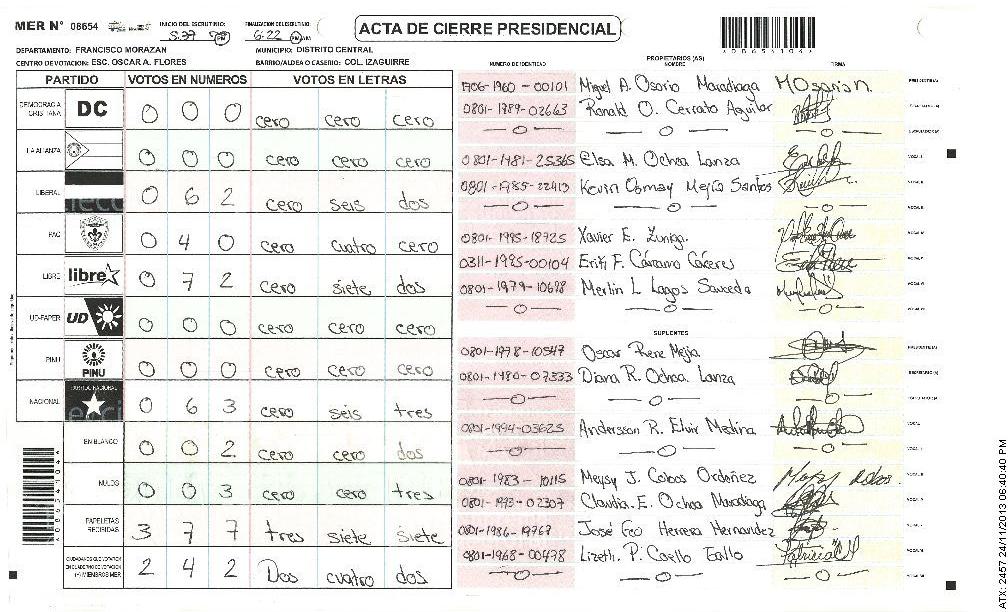 MER N° 08654 INICIO DEL ESCRUTINIO: 5:39 PM FINALIZACION DEL ESCRUTINIO: 6:22 PM ACTA DE CIERRE PRESIDENCIAL
DEPARTAMENTO: FRANCISCO MORAZAN MUNICIPIO: DISTRITO CENTRAL
CENTRO DE VOTACION: ESC. OSCAR A. FLORES BARRIO/ALDEA O CASERIO: COL. IZAGUIRRE
PARTIDO VOTOS EN NUMEROS VOTOS EN LETRAS
DEMOCRACIA CRISTIANA DC 0 0 0 cero cero cero
LA ALIANZA 0 0 0 cero cero cero
LIBERAL 0 6 2 cero seis dos
PAC 0 4 0 cero cuatro cero
LIBRE libre 0 7 2 cero siete dos
UD-FAPER UD 0 0 0 cero cero cero
PINU PINU 0 0 0 cero cero cero
NACIONAL PARTIDO NACIONAL 0 6 3 cero seis tres
EN BLANCO 0 0 2 cero cero dos
NULOS 0 0 3 cero cero tres
PAPELETAS RECIBIDAS 3 7 7 tres siete siete
CIUDADANOS QUE VOTARON EN CUADERNO DE VOTACION (+) MIEMBROS MER 2 4 2 Dos cuatro dos
PROPIETARIOS (AS)
NUMERO DE IDENTIDAD NOMBRE FIRMA
1706-1960-00101 Miguel A. Osorio Maradiaga MOsorio
0801-1989-02663 Ronald O. Cerrato Aguilar
— 0 — — 0 — — 0 —
0801-1981-25365 Elsa M. Ochoa Lanza
0801-1985-22413 Kevin Osmay Mejia Santos
— 0 — — 0 — — 0 —
0801-1995-18925 Xavier E. Zuniga
0311-1985-00104 Erik F. Cáceres
0801-1979-10698 Merlin L Lagos Sauceda
— 0 — — 0 — — 0 —
SUPLENTES
0801-1978-10547 Oscar Rene Mejia
0801-1980-07333 Diana R. Ochoa Lanza
— 0 — — 0 — — 0 —
0801-1994-03625 Andersson R. Elvir Medina
— 0 — — 0 — — 0 —
0801-1983-10115 Meysy J. Cobos Ordoñez
0801-1993-02307 Claudia E. Ochoa Maradiaga
0801-1986-19767 José Herrera Hernandez
0801-1968-00478 Lizeth. P.
— 0 — — 0 — — 0 —
ATX: 2457 24/11/2013 06:40:40 PM